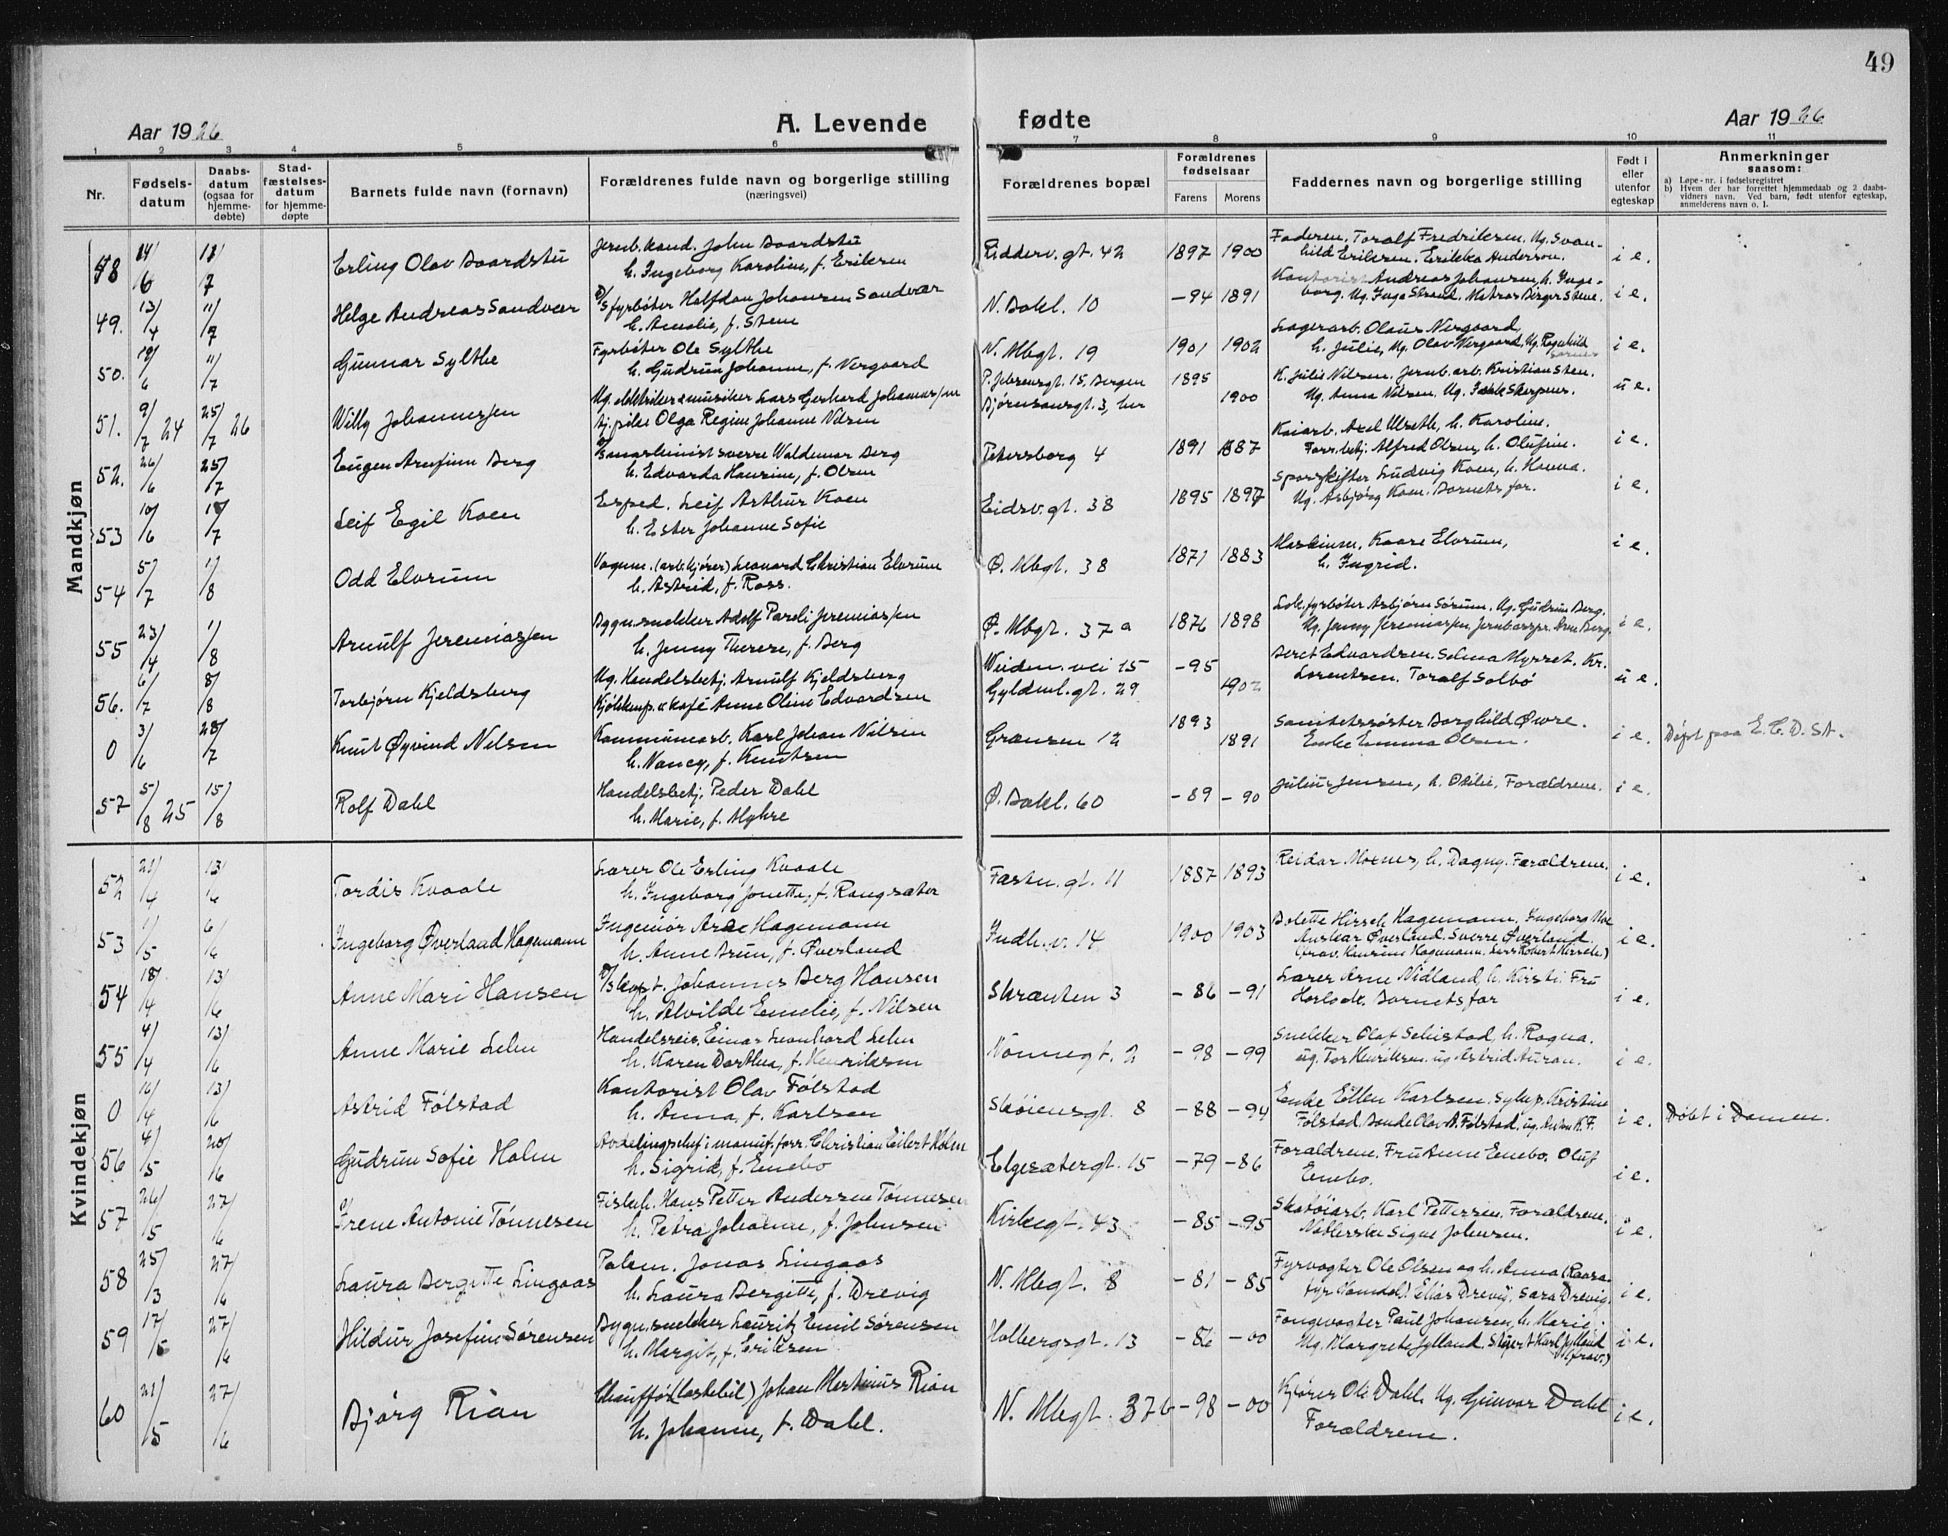 49
Aar 1926 A. Levende fødte Aar 1926
1 2 3 4 5 6 7 8 9 10 11
Nr. Fødselsdatum Daabsdatum (ogsaa for hjemmedøbte) Stadfæstelsesdatum for hjemmedøpte Barnets fulde navn (fornavn) Forældrenes fulde navn og borgerlige stilling (næringsvei) Forældrenes bopæl Forældrenes fødselsaar Farens Morens Faddernes navn og borgerlige stilling Født i eller utenfor egteskap Anmerkninger saasom:
a) Løpe-nr. i fødselsregistret
b) Hvem der har forrettet hjemmedaab og 2 daabsvidners navn. Ved barn, født utenfor egteskap, anmelderens navn o. l.
Mandkjøn
48 14/6 18/7 Erling Olav Baardstu Jernb.kond. John Baardstu Ridderv.gt. 42 1897 1900 Faderen, Toralf Fredriksen, Ug. Svan- i e.
h. Ingeborg Karoline, f. Eriksen hild Eriksen, Erikka Anderson.
49. 13/4 11/7 Helge Andreas Sandvær D/S fyrbøter Halfdan Johansen Sandvær N. Bakl. 10 -94 1891 Kontorist Andreas Johansen, h. Inge- i e.
h. Amalie, f. Stene borg. Ug. Inga Strand. Matros Birger Stene.
50. 19/6 11/7 Gunnar Sylthe Fyrbøter Ole Sylthe N. Mbgt. 19 1901 1902 Lagerarb. Olaus Nergaard i e.
h. Gudrun Johanne, f. Nergaard h. Julie, Ug. Olav Nergaard, Ug. Ragnhild
51. 9/7 24 25/7 26 Willy Johannessen Ug. elektriker & musiker Lars Gerhard Johannessen P. Jebsensgt. 15, Bergen 1895 K. Julie Nilsen. Jernb.arb. Kristian Sten. u e.
tj.pike Olga Regine Johanne Nilsen Bjørnsonsgt. 3, her 1900 Ug. Anna Nilsen. Ug.
52. 26/6 25/7 Eugen Arnfinn Berg Verdemar Berg Petersborg 4 1891 1887 Kaiarb. Axel Ulseth, h. Karoline. i e.
h. Edvarda Haurine, f. Olsen Forr.betj. Alfred Olsen, h. Olufine.
53 10/6 18/7 Leif Egil Koen Exped. Leif Arthur Koen Eidsv.gt. 38 1895 1897 Sporskifter Ludvig Koen, h. Hanna. i e.
h. Ester Johanne Sofie Ug. Asbjørg Koen. Barnets far.
54 5/7 1/8 Odd Elvrum Vognm. (arb.kjører) Leonard Christian Elvrum Ø. Mbgt. 38 1871 1883 Maskinm. Kaare Elvrum, i e.
h. Astrid, f. Ross. h. Ingrid.
55 23/4 1/8 Arnulf Jeremiassen Bygn.snekker Adolf Pareli Jeremiassen Ø. Mbgt. 37a 1876 1898 Lok.fyrbøter Asbjørn Sørum. Ug. Gudrun Berg. i e.
h. Jenny Therese, f. Berg Ug. Jenny Jeremiassen, Jernb.arb. Arne Berg.
56. 6/7 8/8 Torbjørn Kjeldsberg Ug. Handelsbetj. Arnulf Kjeldsberg Weiden. vei 15 -95 Beret Edvardsen. Selma Myrset. Kr. u e.
Kjøkkenp. v. kafé Anne Oline Edvardsen Gyldenl.gt. 29 1902 Lorentsen. Toralf Solbø
0 3/6 28/7 Knut Øyvind Nilsen Kommunearb. Karl Johan Nilsen Grænsen 12 1893 Sanitetssøster Borghild Øwre. i e. Døpt paa E. C. D. St.
h. Nancy, f. Knutsen 1891 Enke Emma Olsen.
57 5/8 25 15/8 Rolf Dahl Handelsbetj. Peder Dahl Ø. Bakl. 60 -89 -90 Julius Jensen, h. Otilie, Forældrene. i e.
h. Marie, f. Myhre
Kvindekjøn
52 21/4 13/6 Tordis Kvaale Lærer Ole Erling Kvaale Fæstn.gt. 11 1887 1893 Reidar Moxnes, h. Dagny. Forældrene. i e.
h. Ingeborg Jonette, f. Rangsæter
53 1/5 6/6 Ingeborg Øverland Hagemann Ingeniør Arne Hagemann Indh.v. 14 1900 1903 Bolette Hirsch Hagemann, Ingeborg Moe i e.
h. Anne Arun, f. Øverland Anskar Øverland. Sverre Øverland.
(frav. Haurine Hagemann. Lars Robert Hirsch)
54 18/4 13/6 Anne Mari Hansen D/S kapt. Johannes Berg Hansen Skrænten 3 -86 -91 Lærer Arne Nidland, h. Kirsti. Fru i e.
h. Alvilde Emelie, f. Nilsen Barnets far
55 4/4 13/6 Anne Marie Lehn Handelsreis. Einar Leonhard Lehn Nonnegt. 2 -98 -99 Snekker Olaf Schistad, h. Ragna. i e.
h. Karen Dorthea, f. Henriksen ug. Tor Henriksen. ug. Astrid Auran.
0 16/4 13/6 Astrid Følstad Kontorist Olav Følstad Skøiensgt. 8 -88 -94 Enke Ellen Karlsen, syerp. Kristine i e. Døbt i Domen.
h. Anna, f. Karlsen Følstad, Bonde Olav A. Følstad, ug.
56 4/5 20/6 Gudrun Sofie Holm Avdelingschef i manuf.forr. Christian Eilert Holm Elgesætergt. 15 -79 -86 Forældrene. Fru Anne Enebo. Oluf i e.
h. Sigrid, f. Enebo Enebo.
57 26/5 27/6 Irene Antonie Tønnesen Fiskeh. Hans Petter Andersen Tønnesen Kirkegt. 43 -85 -95 Skotøiarb. Karl Pettersen. Forældrene. i e.
h. Petra Johanne, f. Johnsen Signe Johnsen.
58 25/3 27/6 Laura Bergitte Lingaas Jonas Lingaas N. Mbgt. 8 -81 -85 Fyrvogter Ole Olsen og h. Anna (Raasa- i e.
h. Laura Bergitte, f. Drevig fyr Namdal). Elias Drevig. Sara Drevig.
59 17/5 27/6 Hildur Josefine Sørensen Bygn.snekker Lauritz Emil Sørensen Holbergsgt. 13 -86 -00 Fangevogter Paul Johansen, h. Marie. i e.
h. Margit, f. Eriksen Ug. Margrete Jylland, Karl Jylland (frav.)
60 21/5 27/6 Bjørg Rian Chaufför (lastebil) Johan Martinus Rian N. Mbgt. 37b -98 -00 Kjører Ole Dahl. Ug. Gunvor Dahl i e.
h. Johanne, f. Dahl. Forældrene.